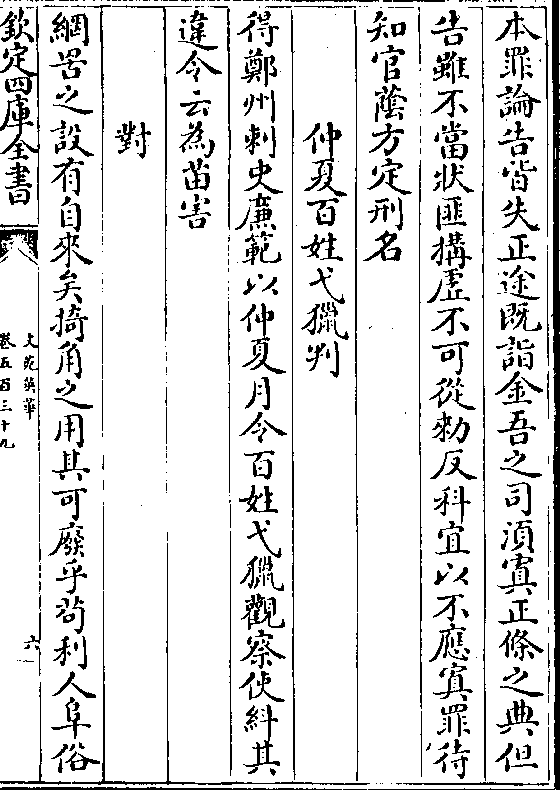 本罪論告皆失正途既詣金吾之司須寘正條之典但
告雖不當狀匪搆虛不可從勅反科宜以不應寘罪待
知官蔭方定刑名
仲夏百姓弋獵判
得鄭州刺史廉範以仲夏月令百姓弋獵觀察使糾其
違令云為苗害
對
網罟之設有自來矣掎角之用其可廢乎茍利人阜俗
欽定四庫全書
文苑英華
卷五百三十九
六